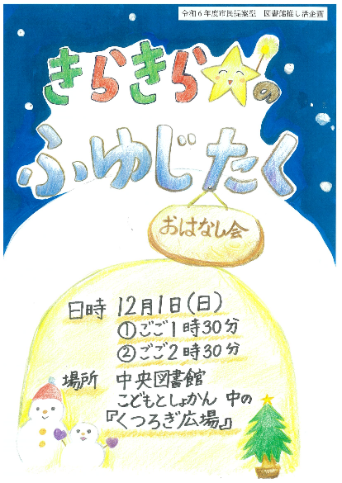 令和6年度市民提案型 図書館推し活企画
きらきら☆の
ふゆじたく
おはなし会
日時 12月1日(日)
①ごご1時30分
②ごご2時30分
場所 中央図書館
こどもとしょかん 中の
『くつろぎ広場』